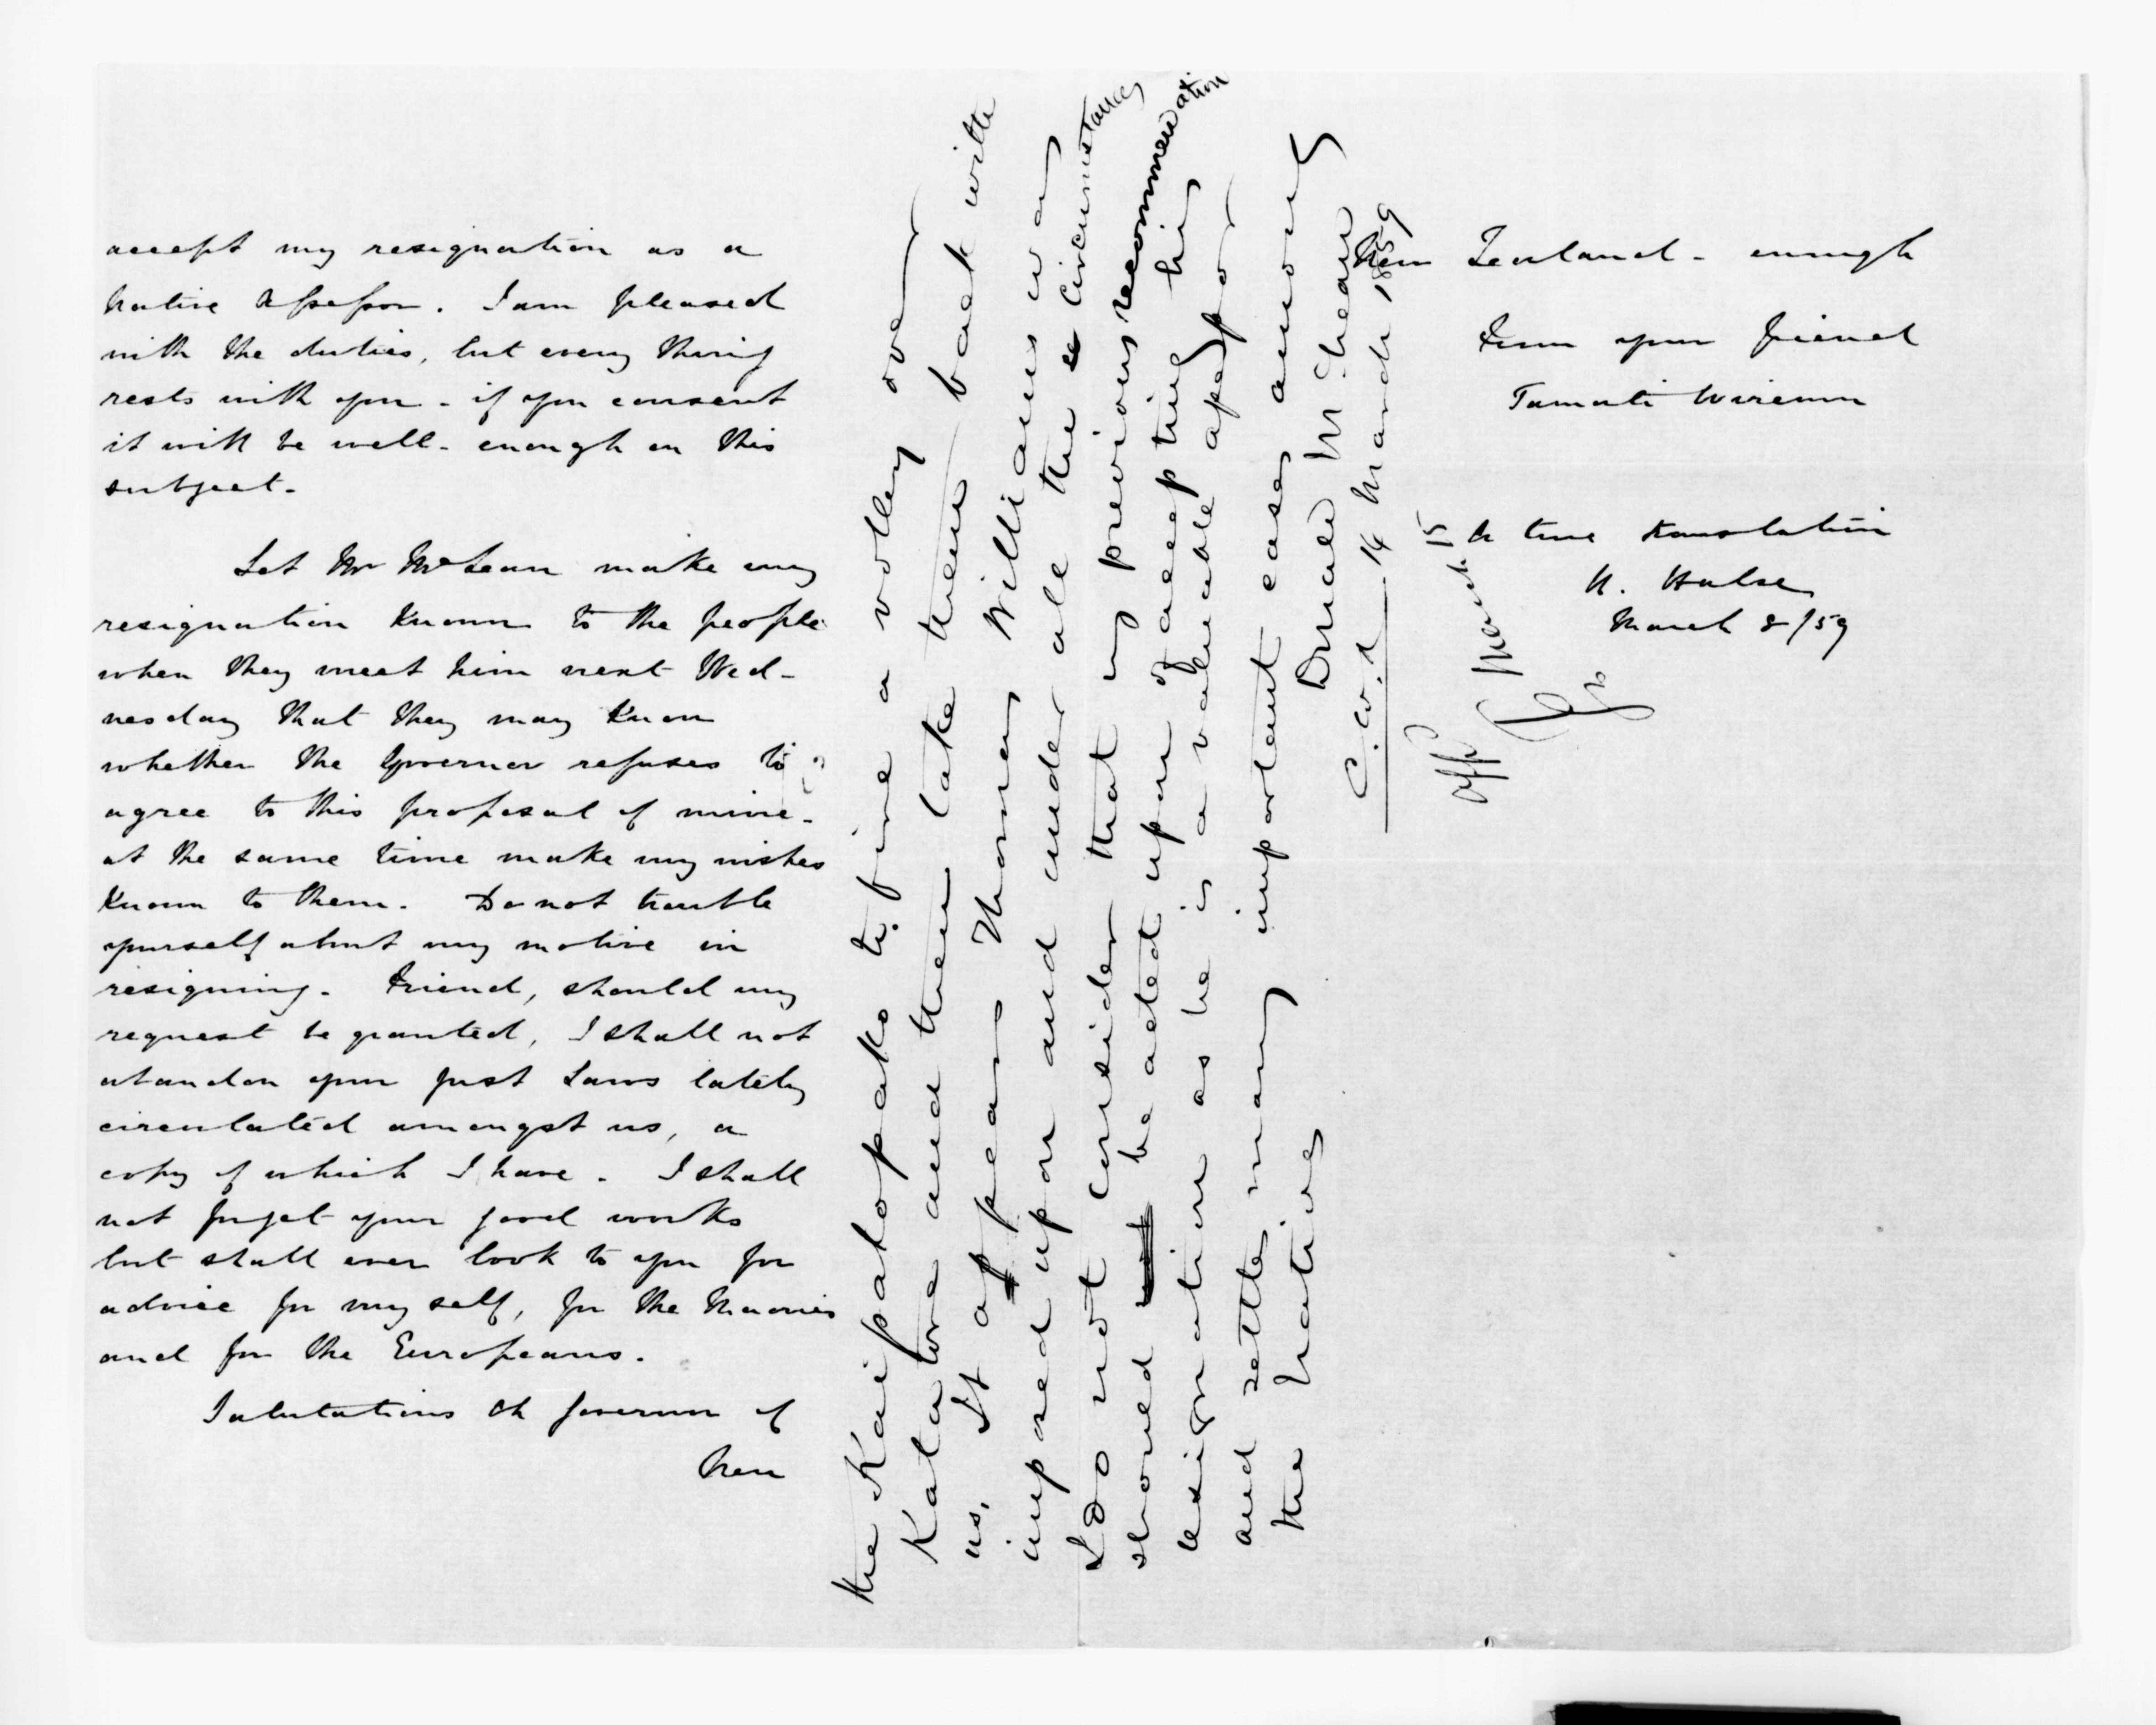 accept my resignation as a
Native Assessor. I am pleased
with the duties, but every thing
rests with you - if you consent
it will be well - enough on this
subject -
Let Mr McLean make my
resignation known to the people
when they meet him next Wed-
nesday that they may know
whether the Governor refuses to
agree to this proposal of mine -
at the same time make my wishes
known to them. Do not trouble
yourself about my motive in
resigning. Friend, should my
request be granted, I shall not
abandon your just Laws lately
circulated amongst us, a
copy of which I have. I shall
not forget your good works
but shall ever look to you for
advice for myself, for the Maories
and for the Europeans.
Salutations Oh Governor of
New
the Kaipakopako to fire a volley over
Katatore and then take them back with
us. It appears Thomas Williams was
imposed upon and under all the circumstances
I do not consider that my previous recommendation
should be acted upon of accepting his
resignation as he is a valuable assessor
and settles many important cases among
the Natives
Donald McLean
C.W.D. 14 March 1859
New Zealand - enough
From your friend
Tamati Wiremu
A true translation
H. Halse
March 8/59
15
March